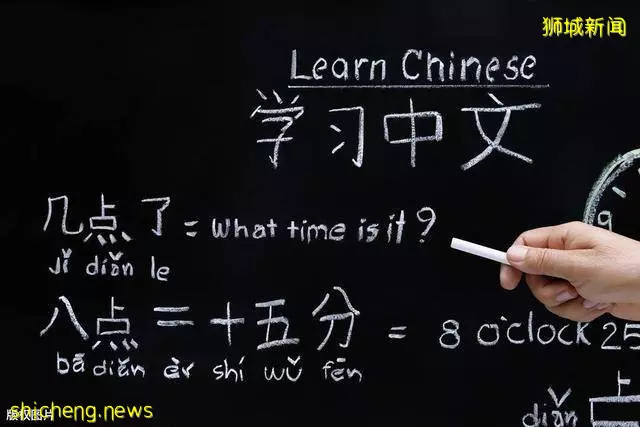 狮城新闻
Learn Chinese
学习中文
几点了 = What time is it?
jǐ diǎn le
八点二十五分 = 8 o'clock 25
bā diǎn èr shí wǔ fēn
diǎn
shicheng.news